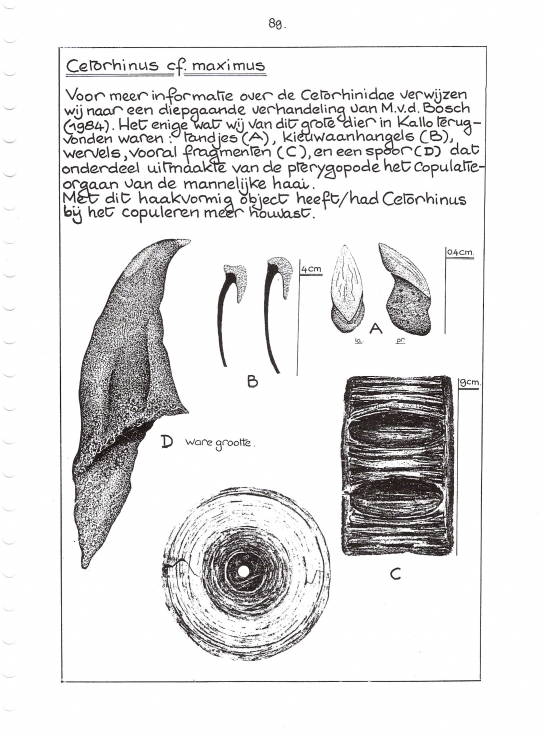 89.
Cetorhinus cf. maximus
Voor meer informatie over de Cetorhinidae verwijzen
wij naar een diepgaande verhandeling van M.v.d. Bosch
(1984). Het enige wat wij van dit grote dier in Kallo terug-
vonden waren : tandjes (A), kieuwaanhangels (B),
wervels, vooral fragmenten (C), en een spoor (D) dat
onderdeel uitmaakte van de pterygopode het copulatie-
orgaan van de mannelijke haai.
Met dit haakvormig object heeft/had Cetorhinus
bij het copuleren meer houvast.
4cm
0.4cm
A
la. pr.
B
9cm.
D ware grootte.
C